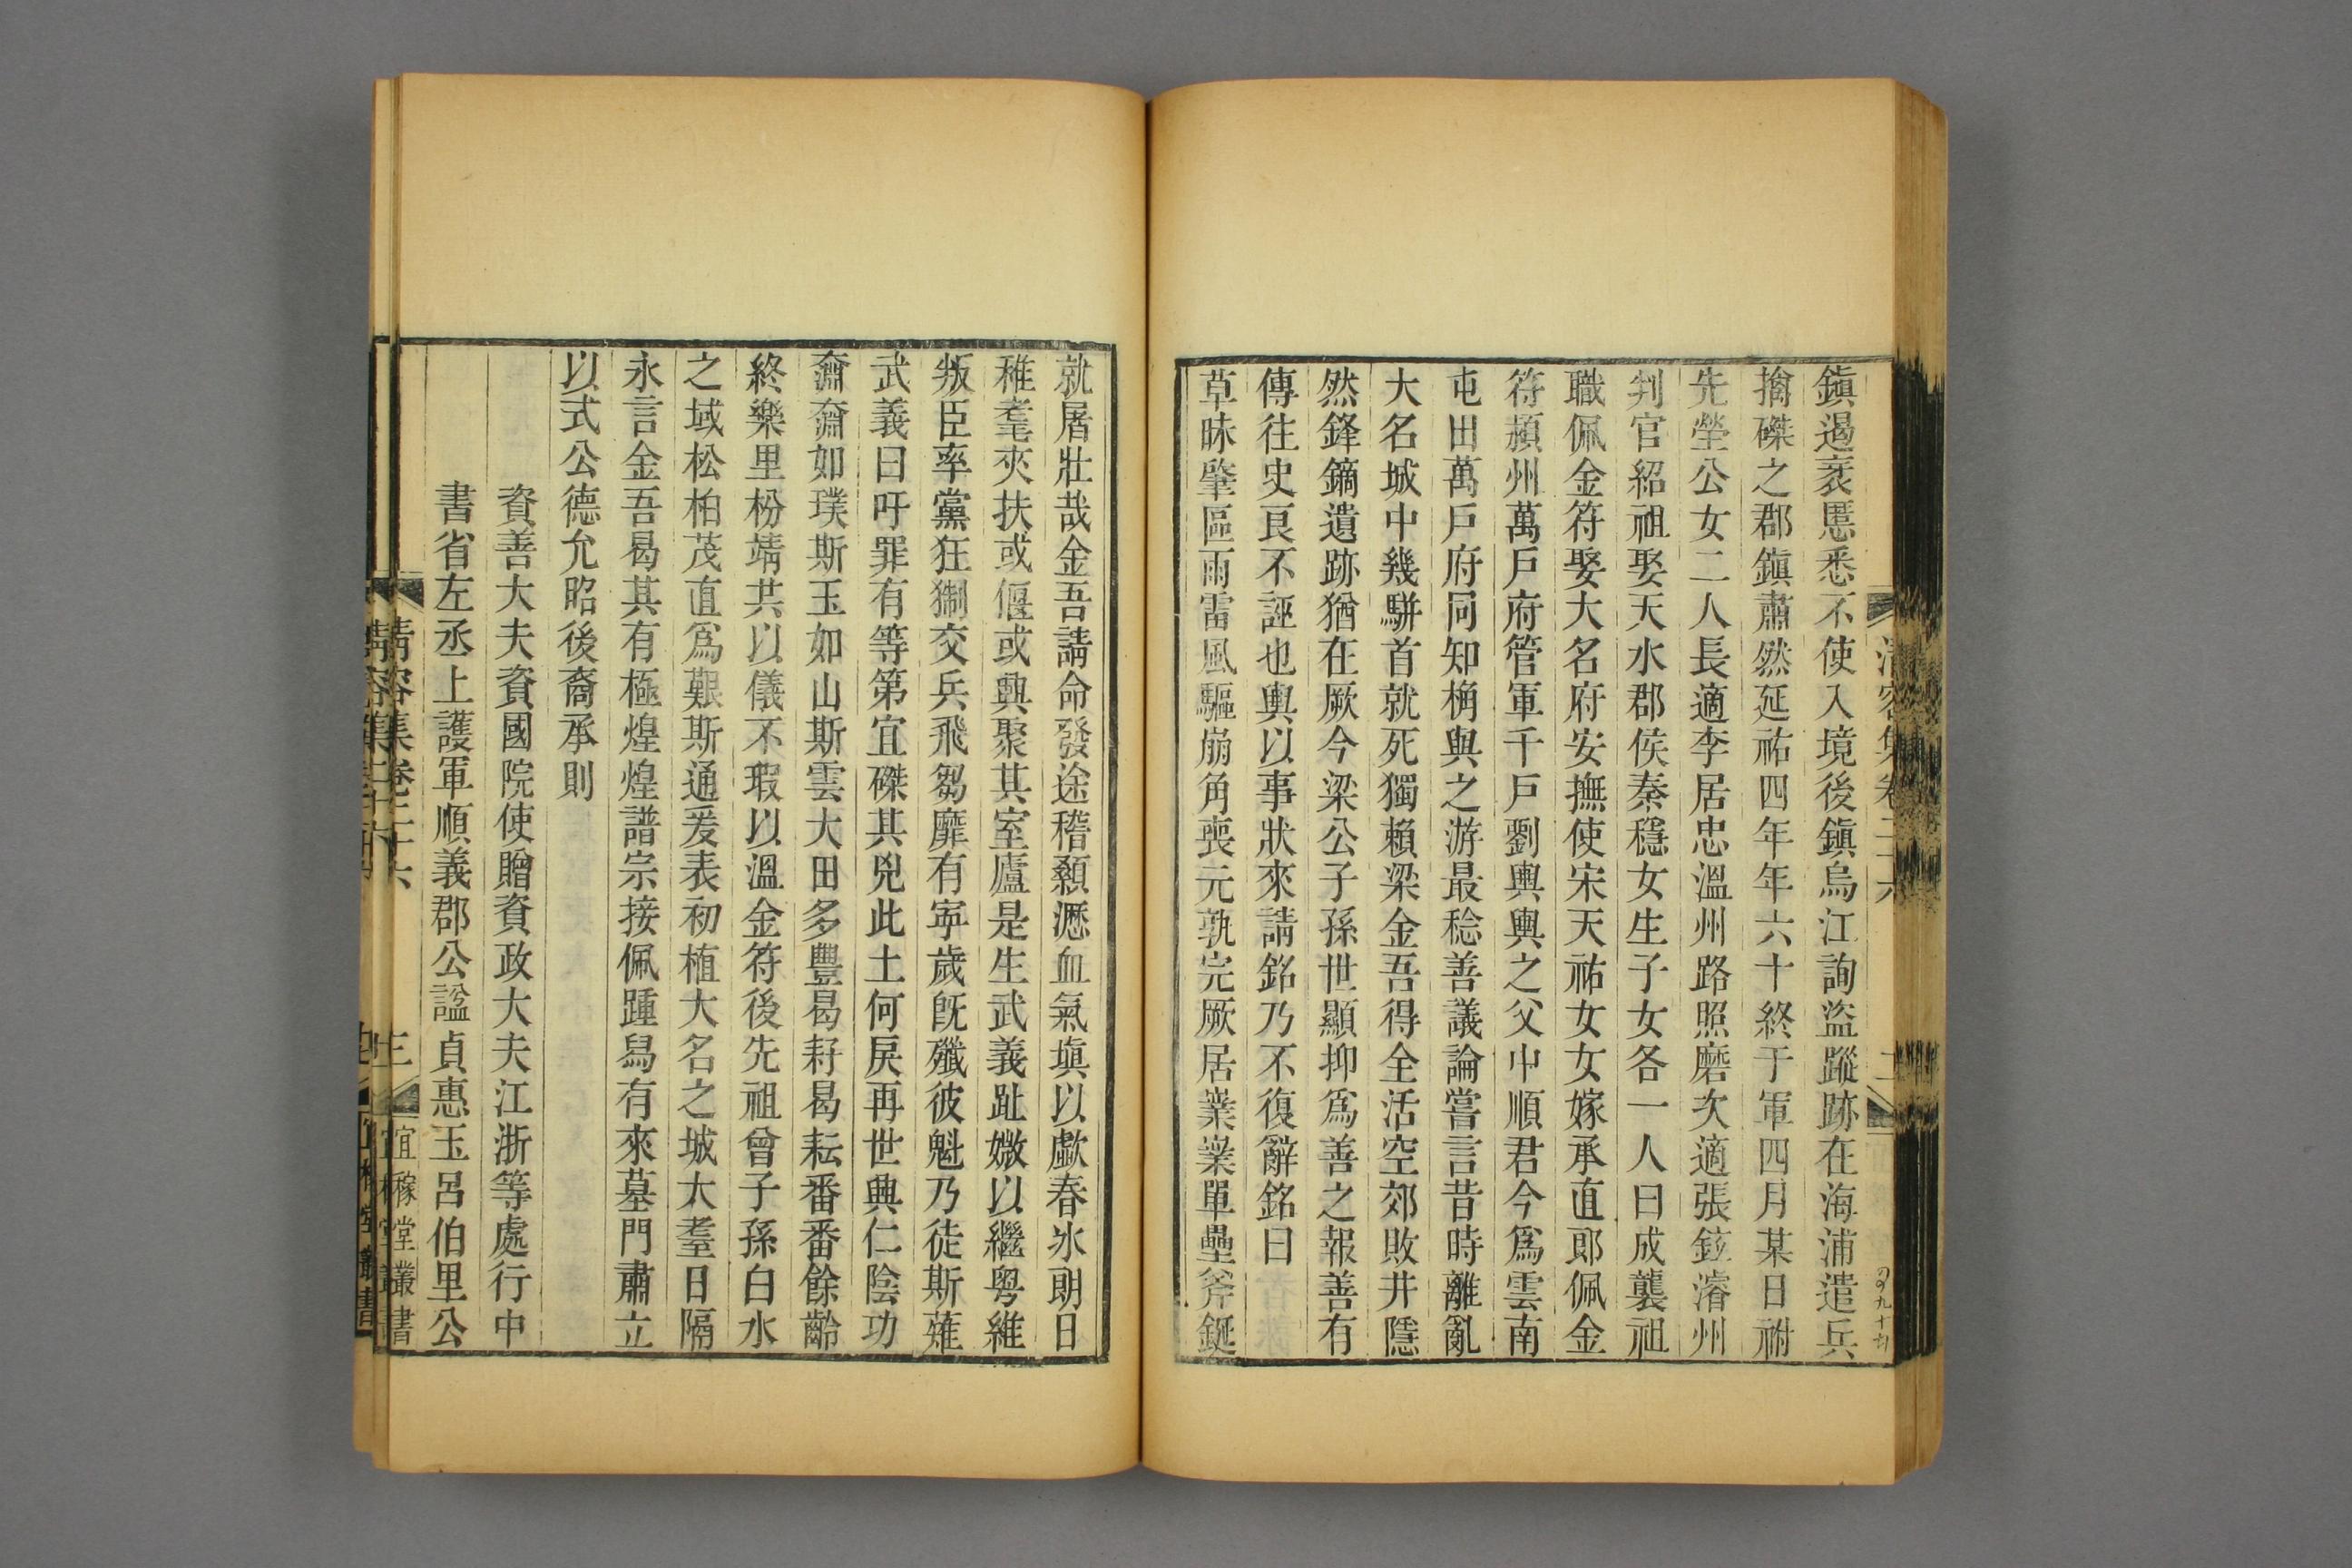 鎮遏衮慝悉不使入境後鎮烏江詢盜蹤跡在海浦遣兵
擒磔之郡鎮肅然延祐四年年六十終于軍四月某日祔
先塋公女二人長適李居忠溫州路照磨次適張鉉濬州
判官紹祖娶天水郡侯秦穩女生子女各一人曰成襲祖
職佩金符娶大名府安撫使宋天祐女女嫁承直郎佩金
符潁州萬戶府管軍千戶劉輿輿之父中順君今爲雲南
屯田萬戶府同知桷與之游最稔善議論嘗言昔時離亂
大名城中幾駢首就死獨賴梁金吾得全活空郊敗井隱
然鋒鏑遺跡猶在厥今梁公子孫世顯抑爲善之報善有
傳往史良不誣也輿以事狀來請銘乃不復辭銘曰
草昧肇區雨雷風驅崩角喪元孰完厥居業業單壘斧鋋
就屠壯哉金吾請命發途稽顙瀝血氣塡以歔春冰朗日
稚耄夾扶或偃或輿聚其室廬是生武義趾媺以繼粵維
叛臣率黨狂猘交兵飛芻靡有寧歲旣殲彼魁乃徒斯薙
武義曰吁罪有等第宜磔其兇此土何戾再世興仁陰功
齋齋如璞斯玉如山斯雲大田多豐曷耔曷耘番番餘齡
終樂里枌靖共以儀不瑕以溫金符後先祖曾子孫白水
之域松柏茂直爲艱斯通爰表初植大名之城大耋日隔
永言金吾曷其有極煌煌譜宗接佩踵舄有來墓門肅立
以式公德允昭後裔承則
資善大夫資國院使贈資政大夫江浙等處行中
書省左丞上護軍順義郡公諡貞惠玉呂伯里公
清容集卷二十六
二
清容集卷二十六
三
宜稼堂叢書